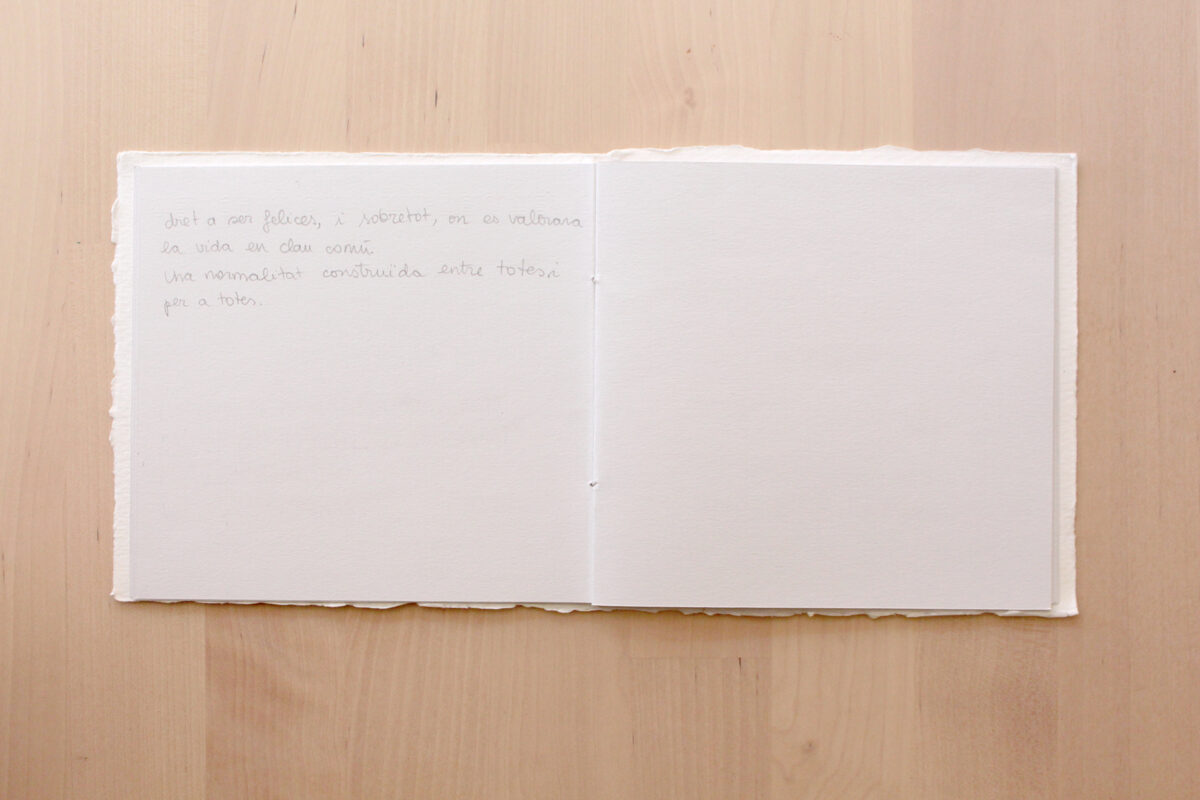 dret a ser felices, i sobretot, on es valorara
la vida en clau comú.
Una normalitat construïda entre totes i
per a totes.